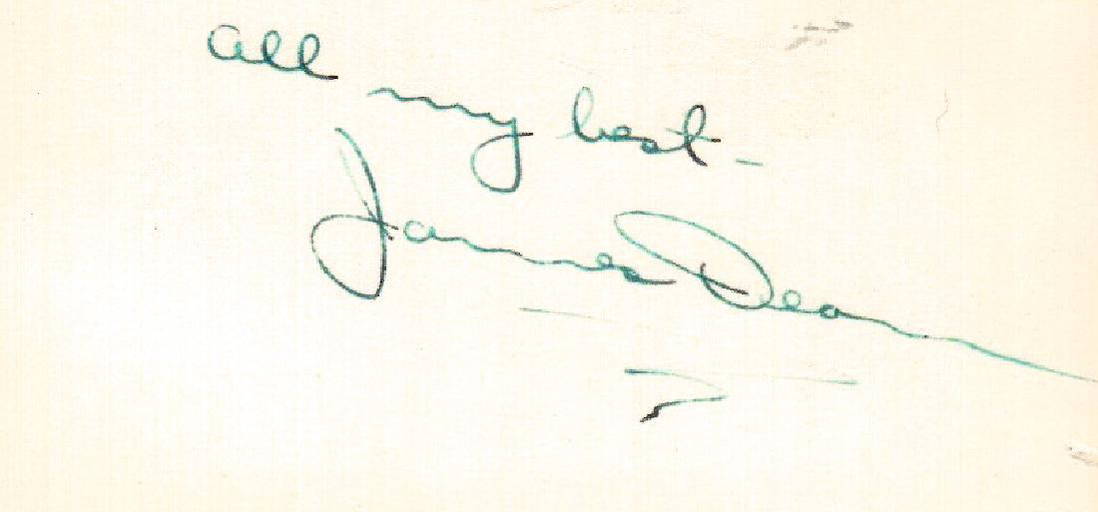 all my best -
James Dean